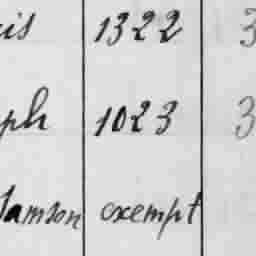 cis 1322 3
ph 1023 3
Jamson exempt